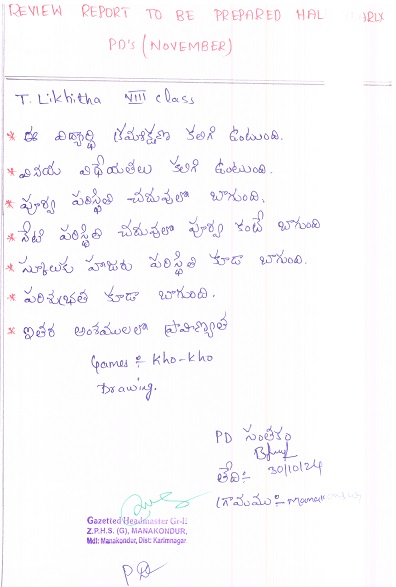 REVIEW REPORT TO BE PREPARED HAL RLX
PD's (NOVEMBER)
T. Likhitha VIII class
* ఈ విద్యార్థి క్రమశిక్షణ కలిగి ఉంటుంది.
* వినయ విధేయతలు కలిగి ఉంటుంది.
* పూర్వ పరిస్థితి చదువులో బాగుంది.
* నేటి పరిస్థితి చదువులో పూర్వ కంటే బాగుంది
* స్కూలుకు హాజరు పరిస్థితి కూడా బాగుంది.
* పరిశుభ్రత కూడా బాగుంది.
* ఇతర అంశములలో ప్రావీణ్యత
Games :- Kho-kho
Drawing.
PD సంతకం
తేది :- 30/10/24
గ్రామము :-
Gazetted Headmaster Gr-II
Z.P.H.S. (G), MANAKONDUR,
Mdl: Manakondur, Dist: Karimnagar
PD